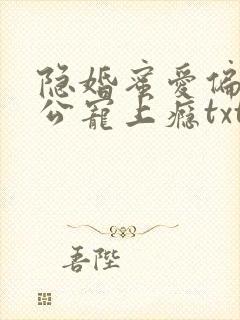 隐婚蜜爱偏
公宠上瘾txt
善陛